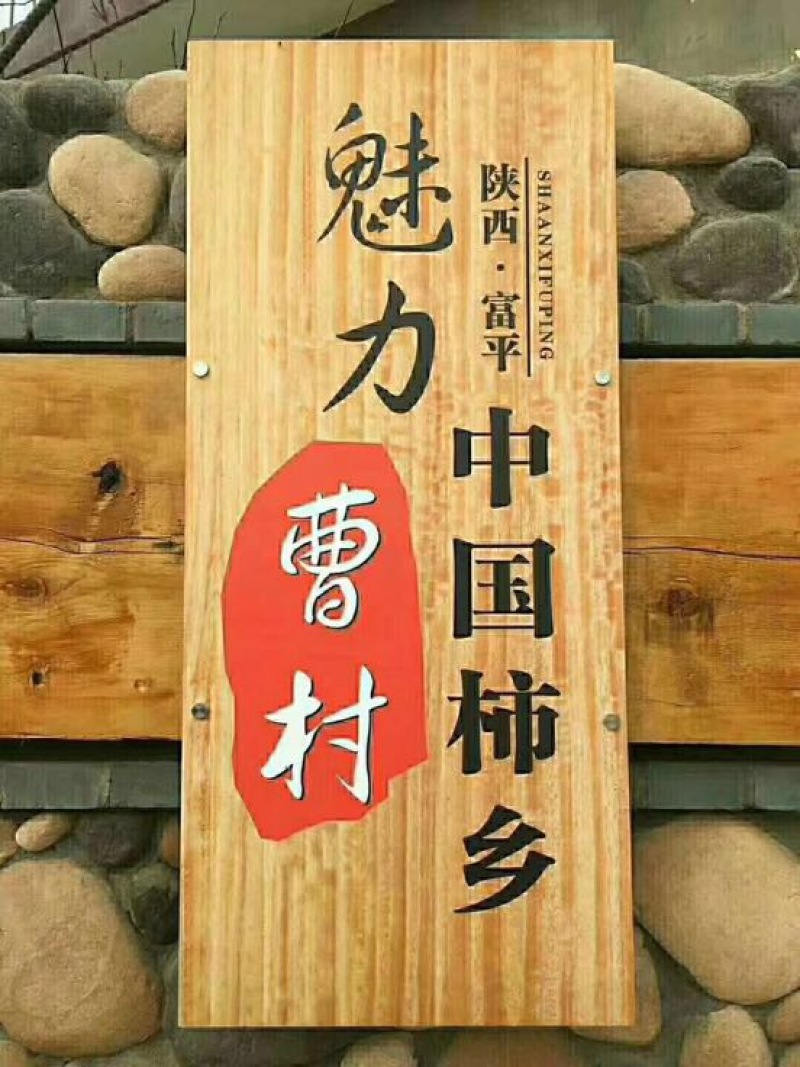 陕西·富平
SHAANXIFUPING
中国柿乡
魅力
曹村